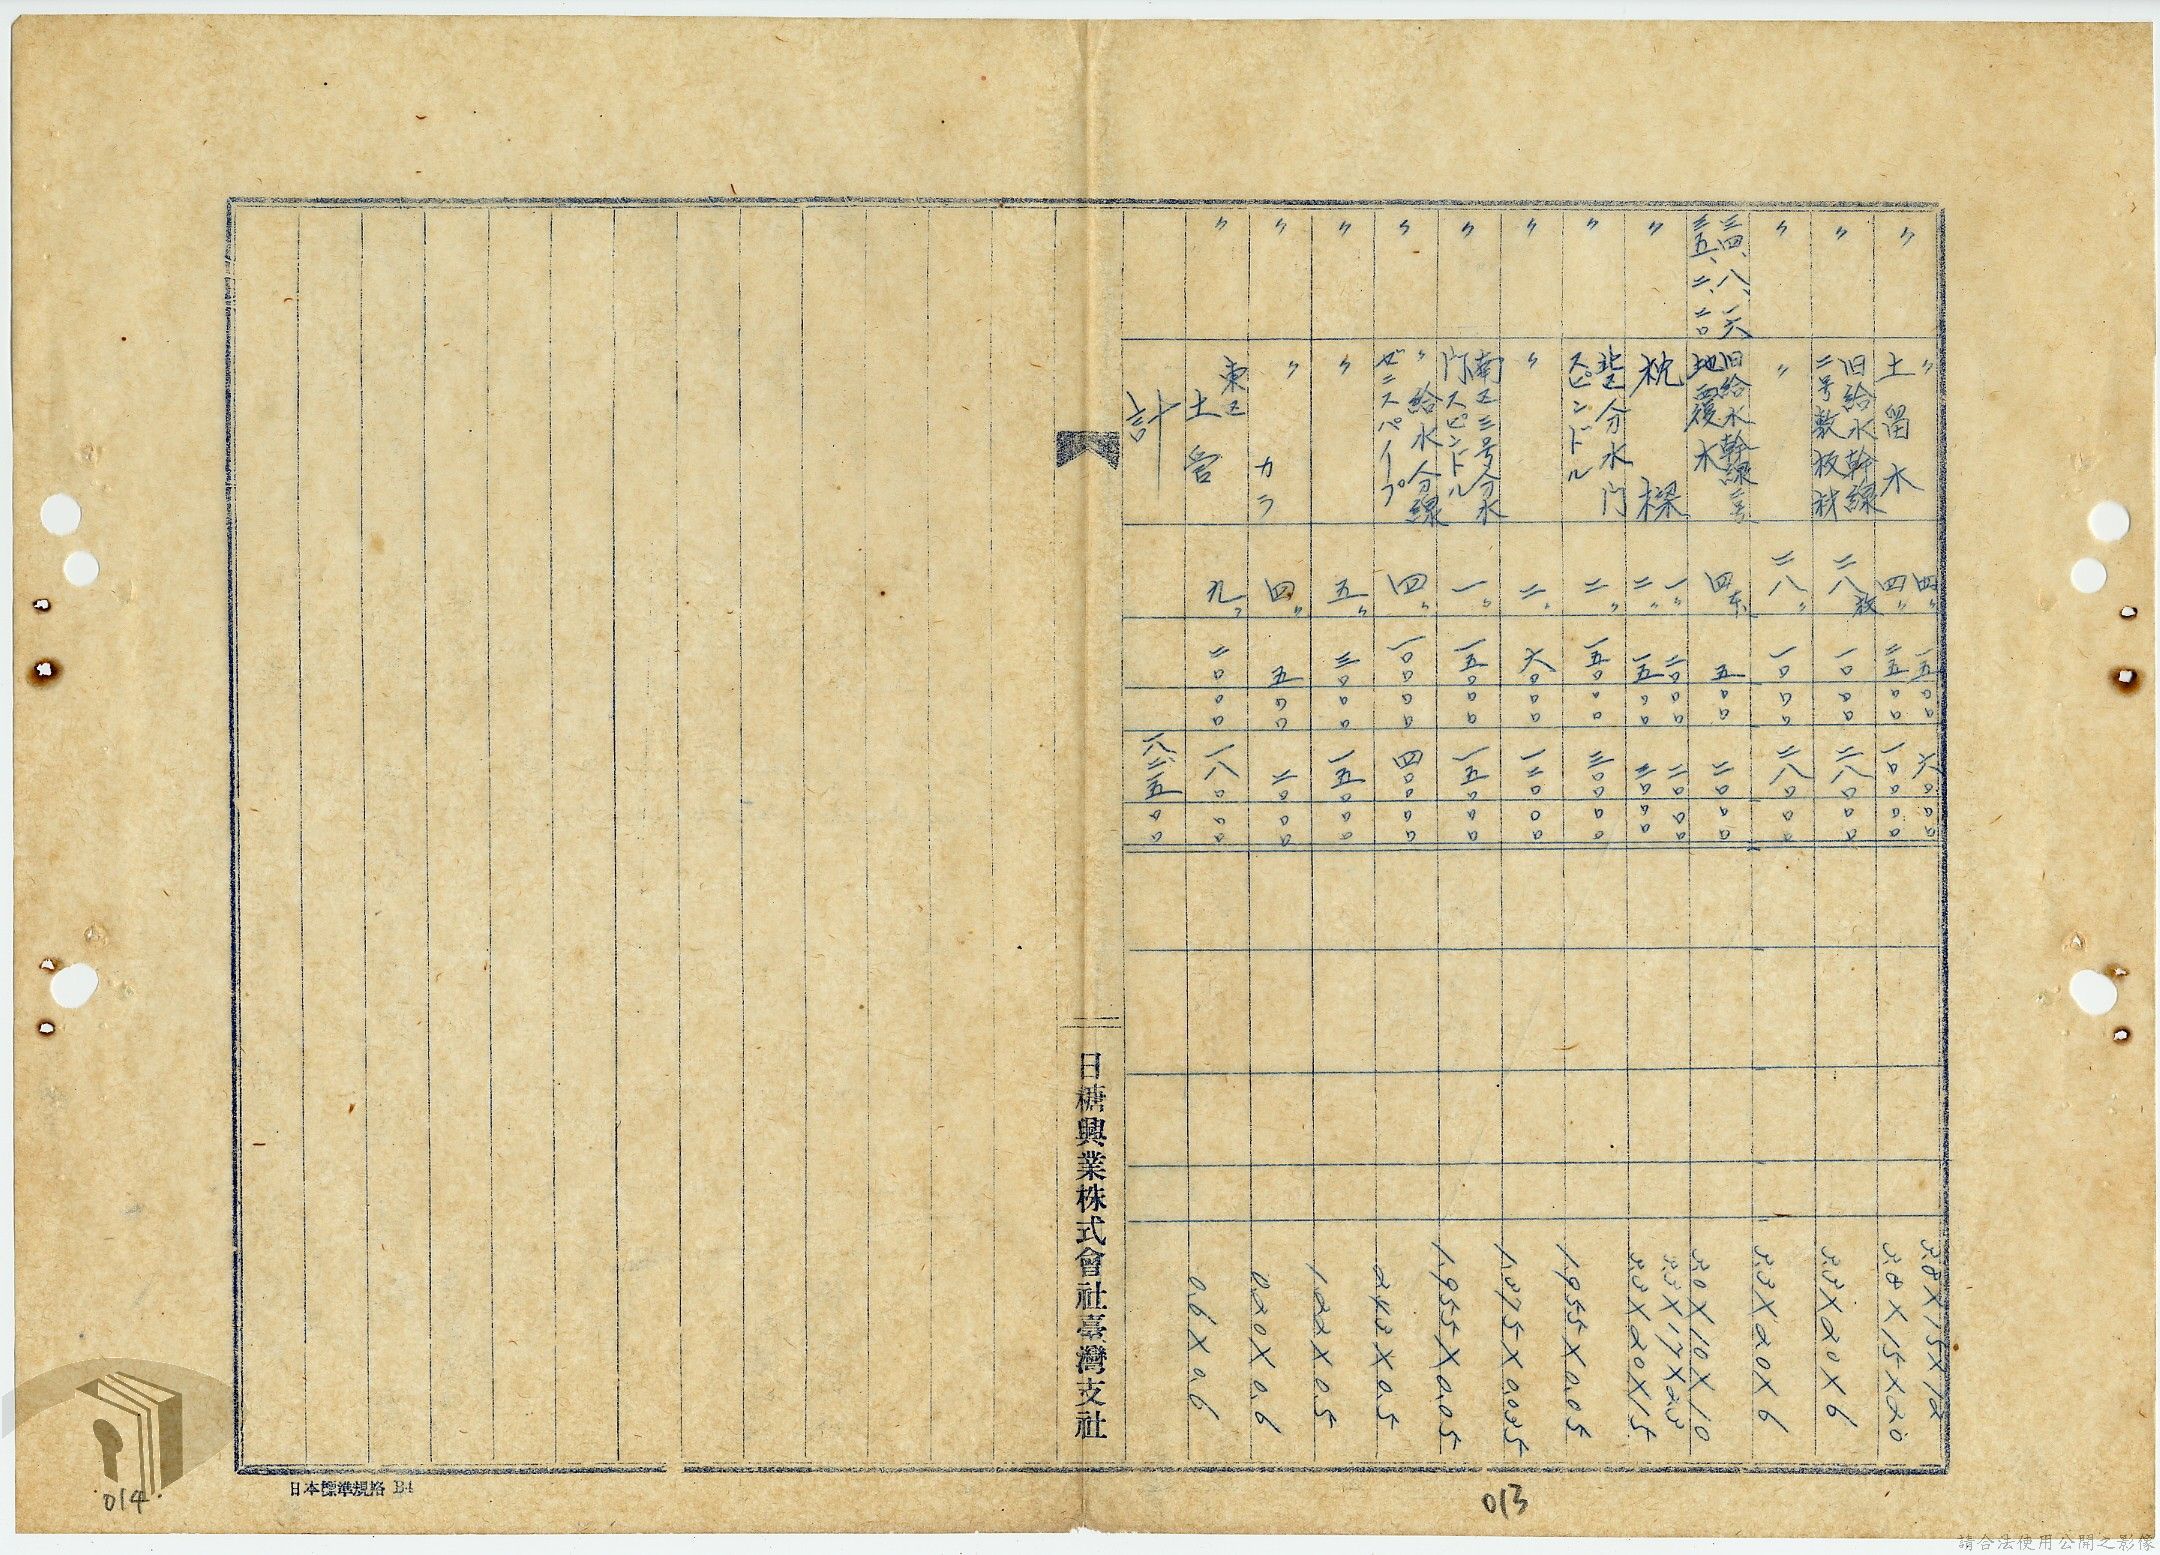 〃 〃 四〃 一五〇〇 六〇〇〇 3.8×15×12
土留木 四〃 二五〇〇 一〇〇〇〇 3.8×15×20
〃 旧給水幹線二号敷板材 二八枚 一〇〇〇 二八〇〇〇 3.3×20×6
〃 〃 二八〃 一〇〇〇 二八〇〇〇 3.3×20×6
三四、八、一六
三五、二、二〇
旧給水幹線二号地覆木 四本 五〇〇 二〇〇〇 3.0×10×10
〃 枕梁 一〃 二〇〇〇 二〇〇〇 3.3×17×23
二〃 一五〇〇 三〇〇〇 3.3×20×15
〃 北区分水門スピンドル 二〃 一五〇〇〇 三〇〇〇〇 1.955×0.05
〃 〃 二〃 六〇〇〇 一二〇〇〇 1.375×0.035
〃 南区三号分水門スピンドル 一〃 一五〇〇〇 一五〇〇〇 1.955×0.05
〃 〃給水分線ゼニスパイプ 四〃 一〇〇〇〇 四〇〇〇〇 2.43×0.5
〃 〃 五〃 三〇〇〇 一五〇〇〇 1.22×0.5
〃 〃カラ 四〃 五〇〇 二〇〇〇 0.20×0.6
〃 東区土管 九〃 二〇〇〇 一八〇〇〇 0.6×0.6
計 一八、二五〇〇
日糖興業株式會社臺灣支社
日本標準規格 B4
014
013
請合法使用公開之影像